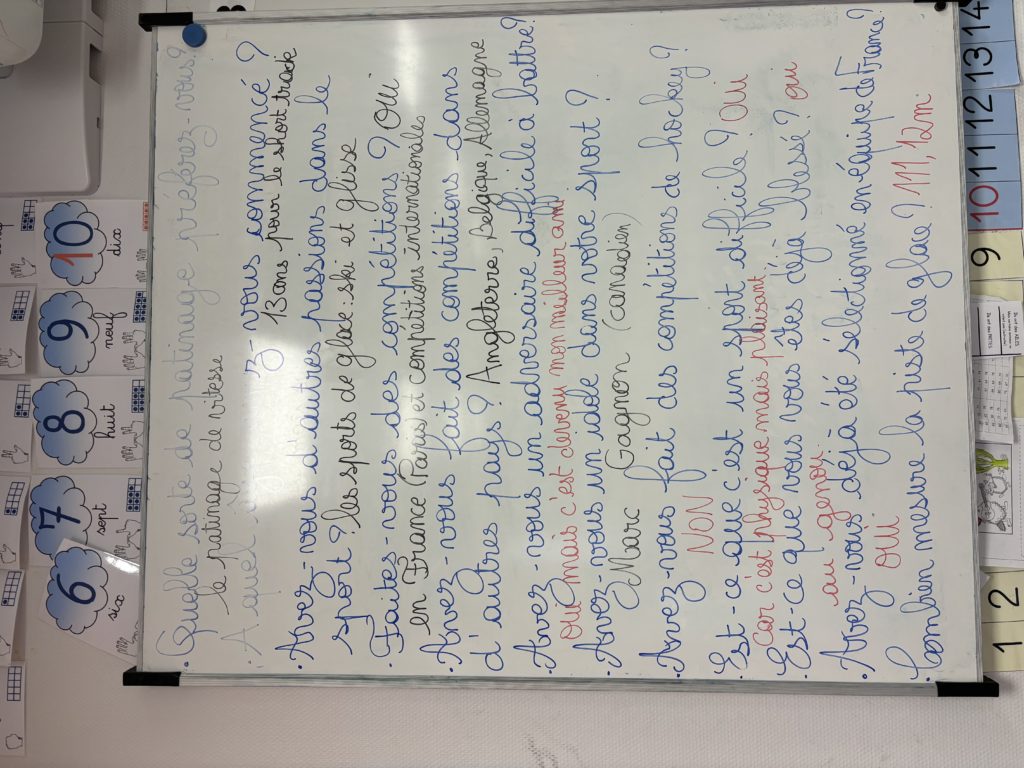 • Quelle sorte de patinage préférez-vous ?
le patinage de vitesse
• A quel
ez-vous commencé ?
13 ans pour le short track
• Avez-vous d'autres passions dans le
sport ? les sports de glace : ski et glisse
• Faites-vous des compétitions ? OUI
en France (Paris) et compétitions internationales
• Avez-vous fait des compétitions dans
d'autres pays ? Angleterre, Belgique, Allemagne
• Avez-vous un adversaire difficile à battre ?
OUI mais c'est devenu mon meilleur ami
• Avez-vous un idole dans votre sport ?
Marc Gagnon (canadien)
• Avez-vous fait des compétitions de hockey ?
NON
• Est-ce que c'est un sport difficile ? OUI
Car c'est physique mais plaisant
• Est-ce que vous vous êtes déjà blessé ? oui
au genou
• Avez-vous déjà été sélectionné en équipe de France ?
OUI
• Combien mesure la piste de glace ? 111,12m
6 7 8 9 10
six sept huit neuf dix
1 2 9 10 11 12 13 14